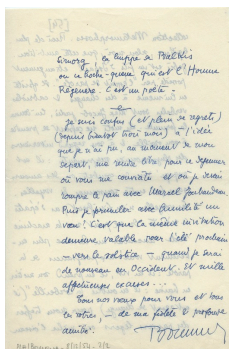 en huppe de Psalbis
ou ce boche-gueux, qui est l'Homme
Régénéré. C'est un poète.
Je suis confus (et plein de regrets)
(depuis bientôt trois mois) à l'idée
que je n'ai pu, au moment de mon
départ, me rendre libre pour le déjeuner
où vous me conviiez et où je devais
rompre le pain avec Marcel Jouhandeau.
Puis-je formuler avec humilité un
vœu ! C'est que la même invitation
demeure valable pour l'été prochain
– vers le solstice – quand je serai
de nouveau en Occident. Et mille
affectueuses excuses...
Tous nos vœux pour vous et tous
les vôtres, – de ma fidèle et profonde
amitié.